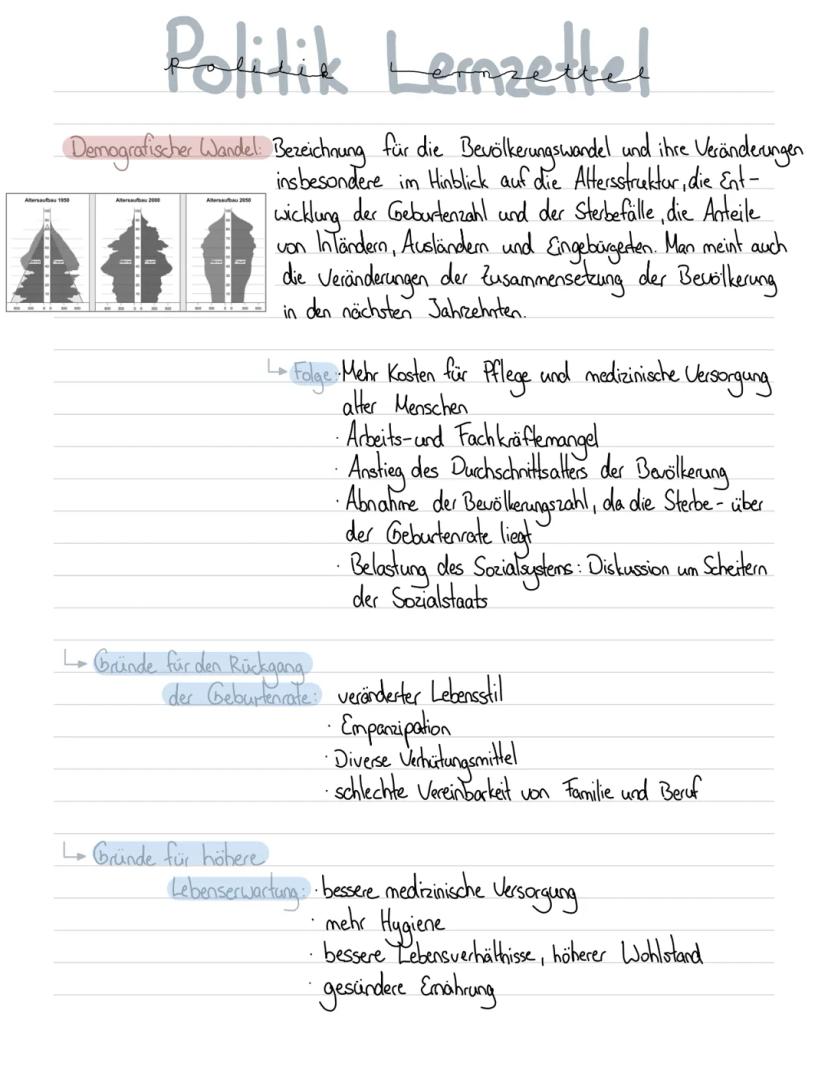 Politik Lernzettel
Politik Lernzettel
Demografischer Wandel: Bezeichnung für die Bevölkerungswandel und ihre Veränderungen
insbesondere im Hinblick auf die Altersstruktur, die Ent-
wicklung der Geburtenzahl und der Sterbefälle, die Anteile
von Inländern, Ausländern und Eingebürgerten. Man meint auch
die Veränderungen der Zusammensetzung der Bevölkerung
in den nächsten Jahrzehnten.
Altersaufbau 1950
Altersaufbau 2000
Altersaufbau 2050
↳ Folge: · Mehr Kosten für Pflege und medizinische Versorgung
alter Menschen
· Arbeits- und Fachkräftemangel
· Anstieg des Durchschnittsalters der Bevölkerung
· Abnahme der Bevölkerungszahl, da die Sterbe- über
der Geburtenrate liegt
· Belastung des Sozialsystems: Diskussion um Scheitern
der Sozialstaats
↳ Gründe für den Rückgang
der Geburtenrate: veränderter Lebensstil
· Empanzipation
· Diverse Verhütungsmittel
· schlechte Vereinbarkeit von Familie und Beruf
↳ Gründe für höhere
Lebenserwartung: · bessere medizinische Versorgung
· mehr Hygiene
· bessere Lebensverhältnisse, höherer Wohlstand
· gesündere Ernährung